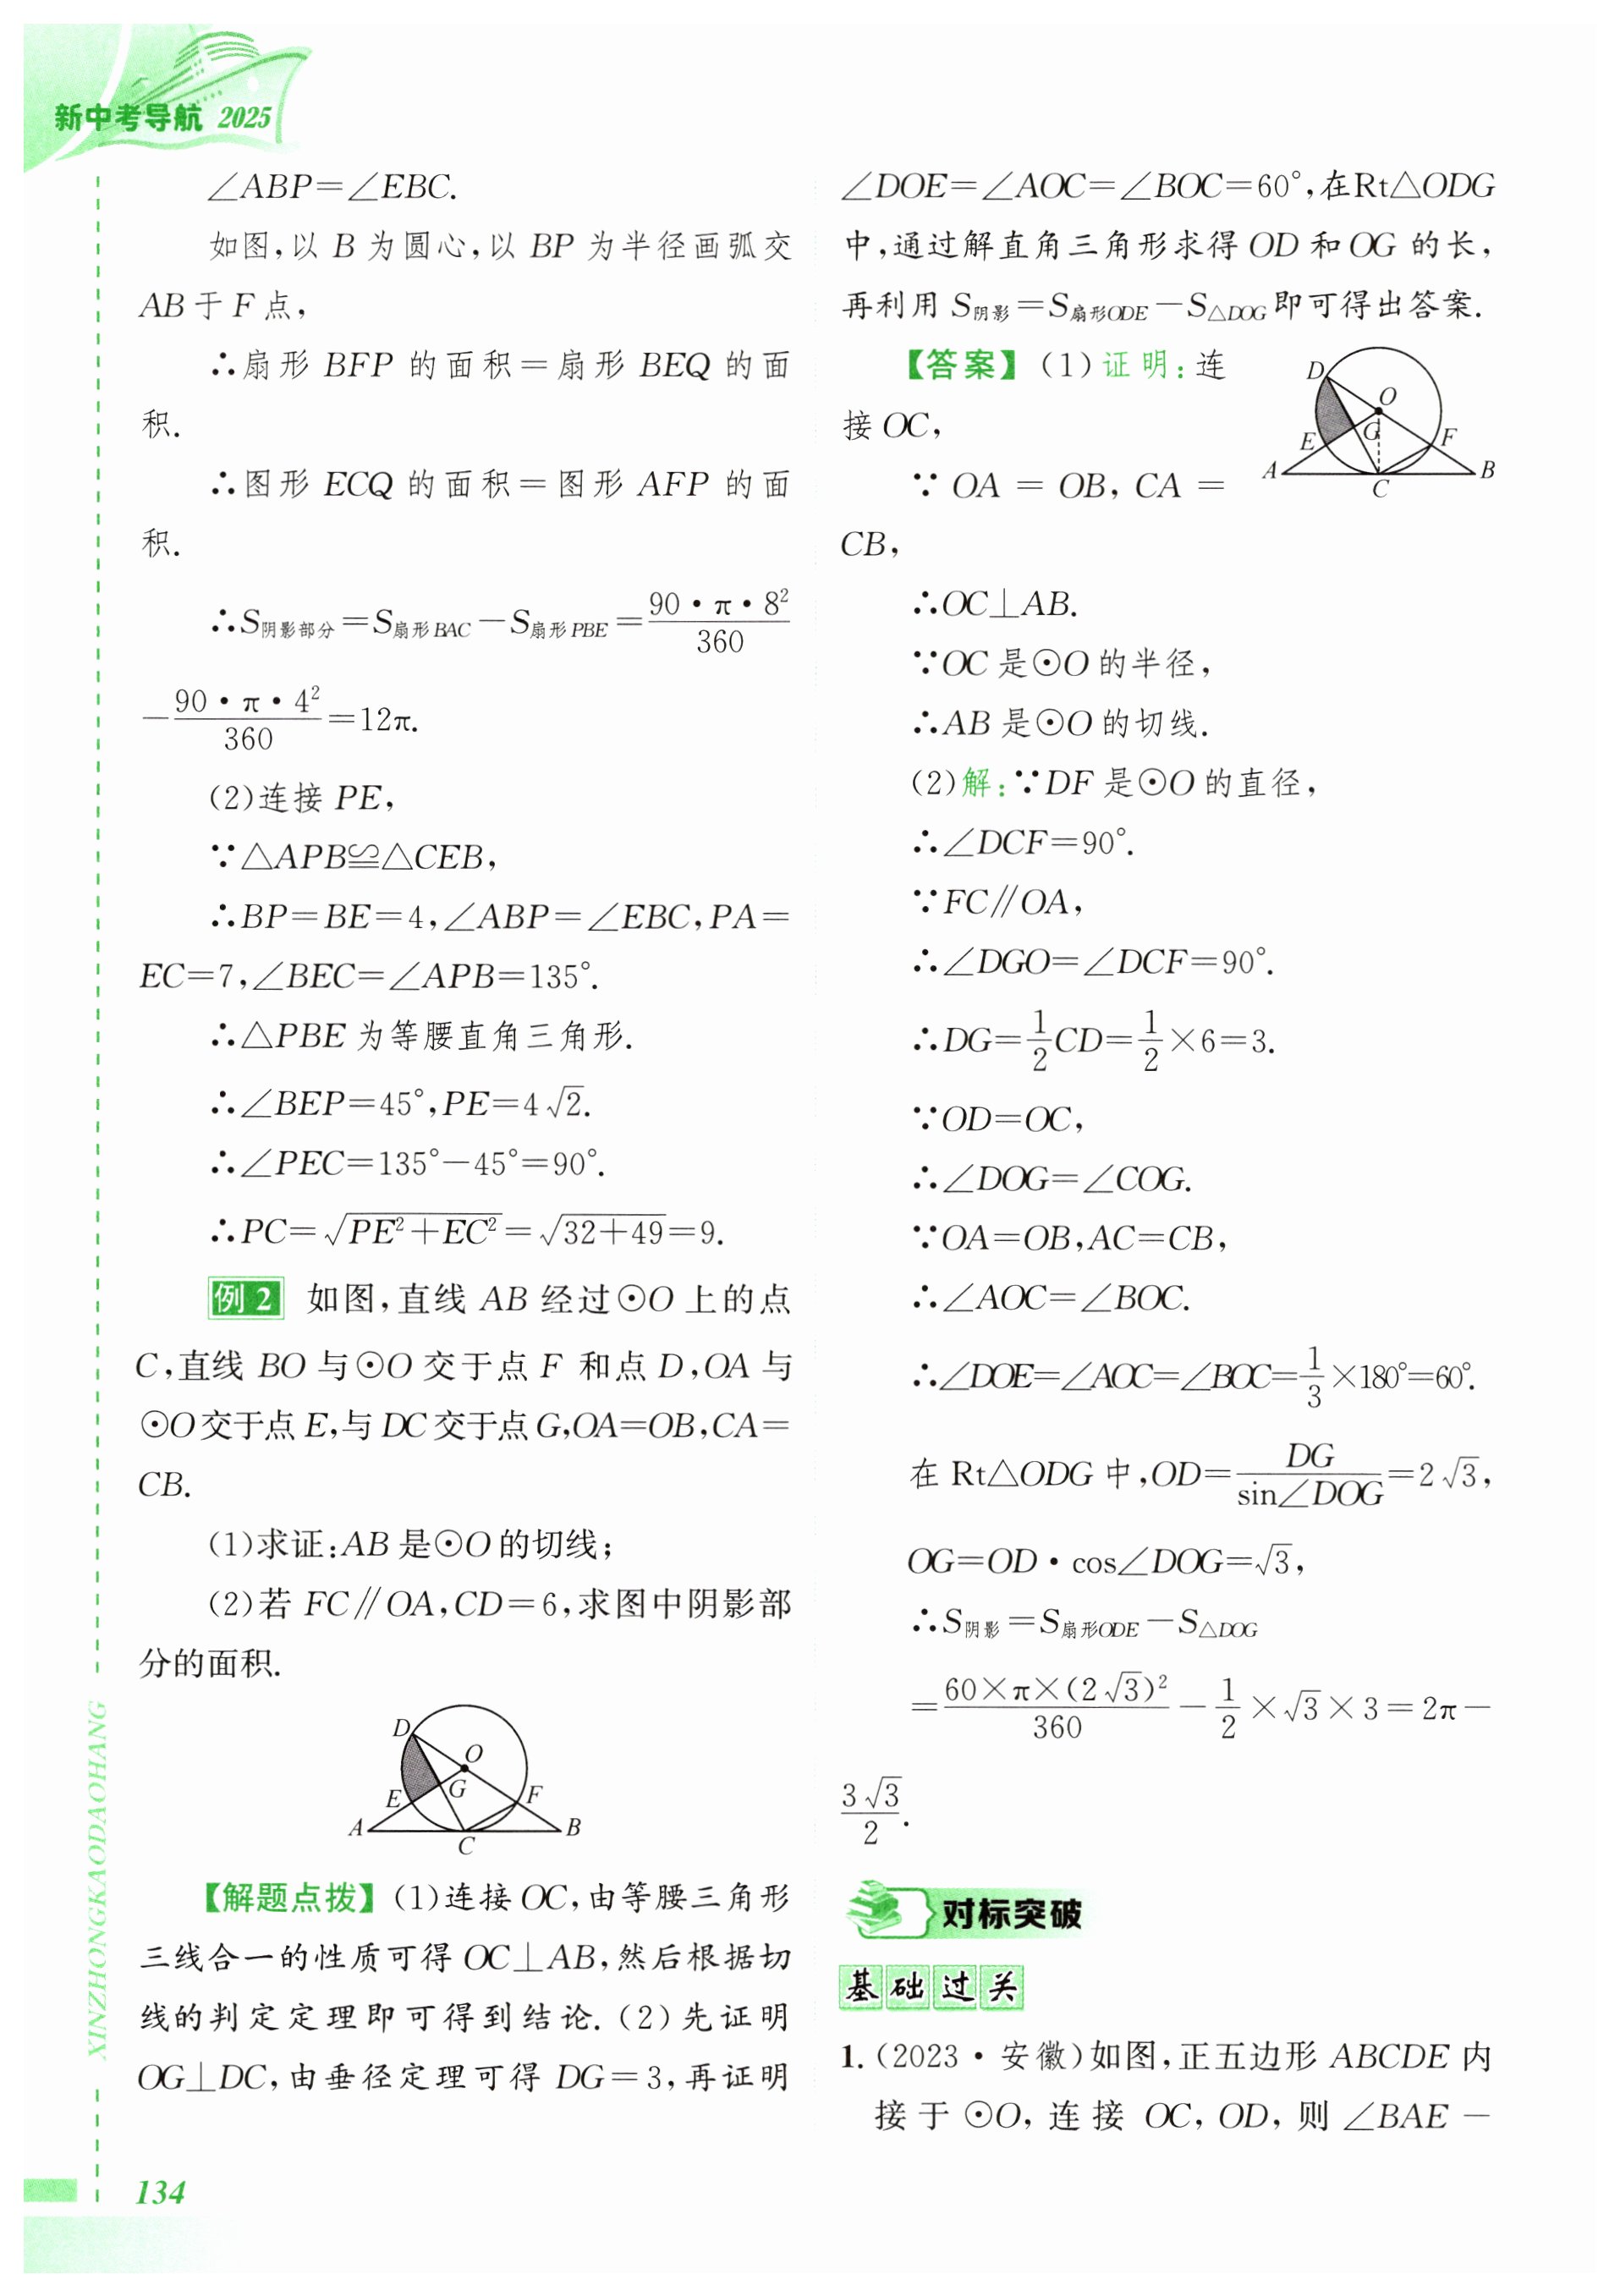 新中考导航 2025
∠ABP=∠EBC.
如图,以 B 为圆心,以 BP 为半径画弧交
AB 于 F 点,
∴扇形 BFP 的面积=扇形 BEQ 的面
积.
∴图形 ECQ 的面积=图形 AFP 的面
积.
∴S阴影部分=S扇形BAC−S扇形PBE=\frac{90·π·8²}{360}
−\frac{90·π·4²}{360}=12π.
(2)连接 PE,
∵△APB≌△CEB,
∴BP=BE=4,∠ABP=∠EBC,PA=
EC=7,∠BEC=∠APB=135°.
∴△PBE 为等腰直角三角形.
∴∠BEP=45°,PE=4√2.
∴∠PEC=135°−45°=90°.
∴PC=√(PE²+EC²)=√(32+49)=9.
例2 如图,直线 AB 经过⊙O 上的点
C,直线 BO 与⊙O 交于点 F 和点 D,OA 与
⊙O交于点 E,与 DC 交于点 G,OA=OB,CA=
CB.
(1)求证:AB 是⊙O 的切线;
(2)若 FC∥OA,CD=6,求图中阴影部
分的面积.
D
O
G
E
F
A
B
C
【解题点拨】(1)连接 OC,由等腰三角形
三线合一的性质可得 OC⊥AB,然后根据切
线的判定定理即可得到结论.(2)先证明
OG⊥DC,由垂径定理可得 DG=3,再证明
∠DOE=∠AOC=∠BOC=60°,在Rt△ODG
中,通过解直角三角形求得 OD 和 OG 的长,
再利用 S阴影=S扇形ODE−S△DOG即可得出答案.
【答案】(1)证明:连
接 OC,
∵ OA = OB, CA =
CB,
D
O
G
E
F
A
B
C
∴OC⊥AB.
∵OC 是⊙O 的半径,
∴AB 是⊙O 的切线.
(2)解:∵DF 是⊙O 的直径,
∴∠DCF=90°.
∵FC∥OA,
∴∠DGO=∠DCF=90°.
∴DG=\frac{1}{2}CD=\frac{1}{2}×6=3.
∵OD=OC,
∴∠DOG=∠COG.
∵OA=OB,AC=CB,
∴∠AOC=∠BOC.
∴∠DOE=∠AOC=∠BOC=\frac{1}{3}×180°=60°.
在 Rt△ODG 中,OD=\frac{DG}{sin∠DOG}=2√3,
OG=OD·cos∠DOG=√3,
∴S阴影=S扇形ODE−S△DOG
=\frac{60×π×(2√3)²}{360}−\frac{1}{2}×√3×3=2π−
\frac{3√3}{2}.
对标突破
基础过关
1.(2023·安徽)如图,正五边形 ABCDE 内
接于⊙O,连接 OC,OD,则∠BAE−
XINZHONGKAODAOHANG
134